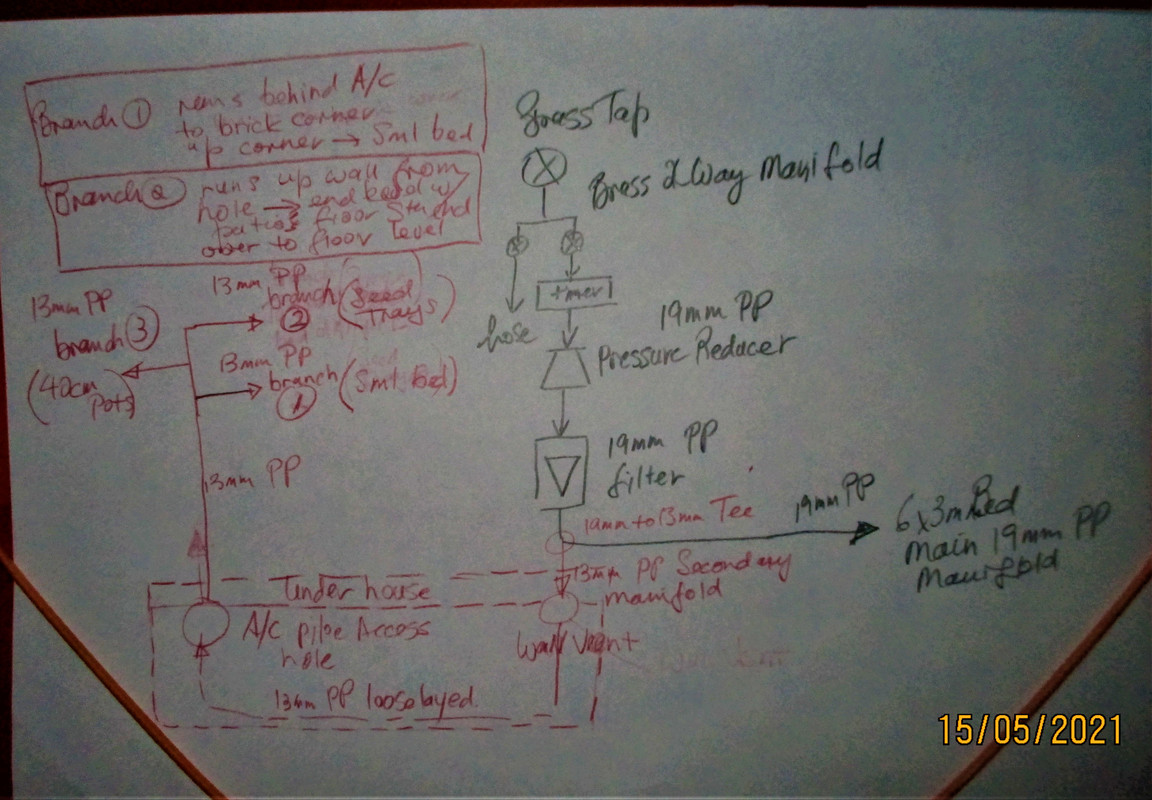 Branch ① runs behind A/c
to brick corner
up corner → Sml bed
Branch ② runs up wall from
hole → end bed w/
patios floor
over to floor level
13mm PP
branch ③
(40cm
Pots)
13mm PP
branch (Seed
② Trays)
13mm PP
branch (Sml bed)
①
13mm PP
Under house
A/C pipe Access
hole
13mm PP loose layed.
Brass Tap
Brass 2 Way Manifold
hose
timer
19mm PP
Pressure Reducer
19mm PP
filter
19mm to 13mm Tee
19mm PP
6x3m Bed
Main 19mm PP
Manifold
13mm PP Secondary
manifold
Wall Vent
15/05/2021